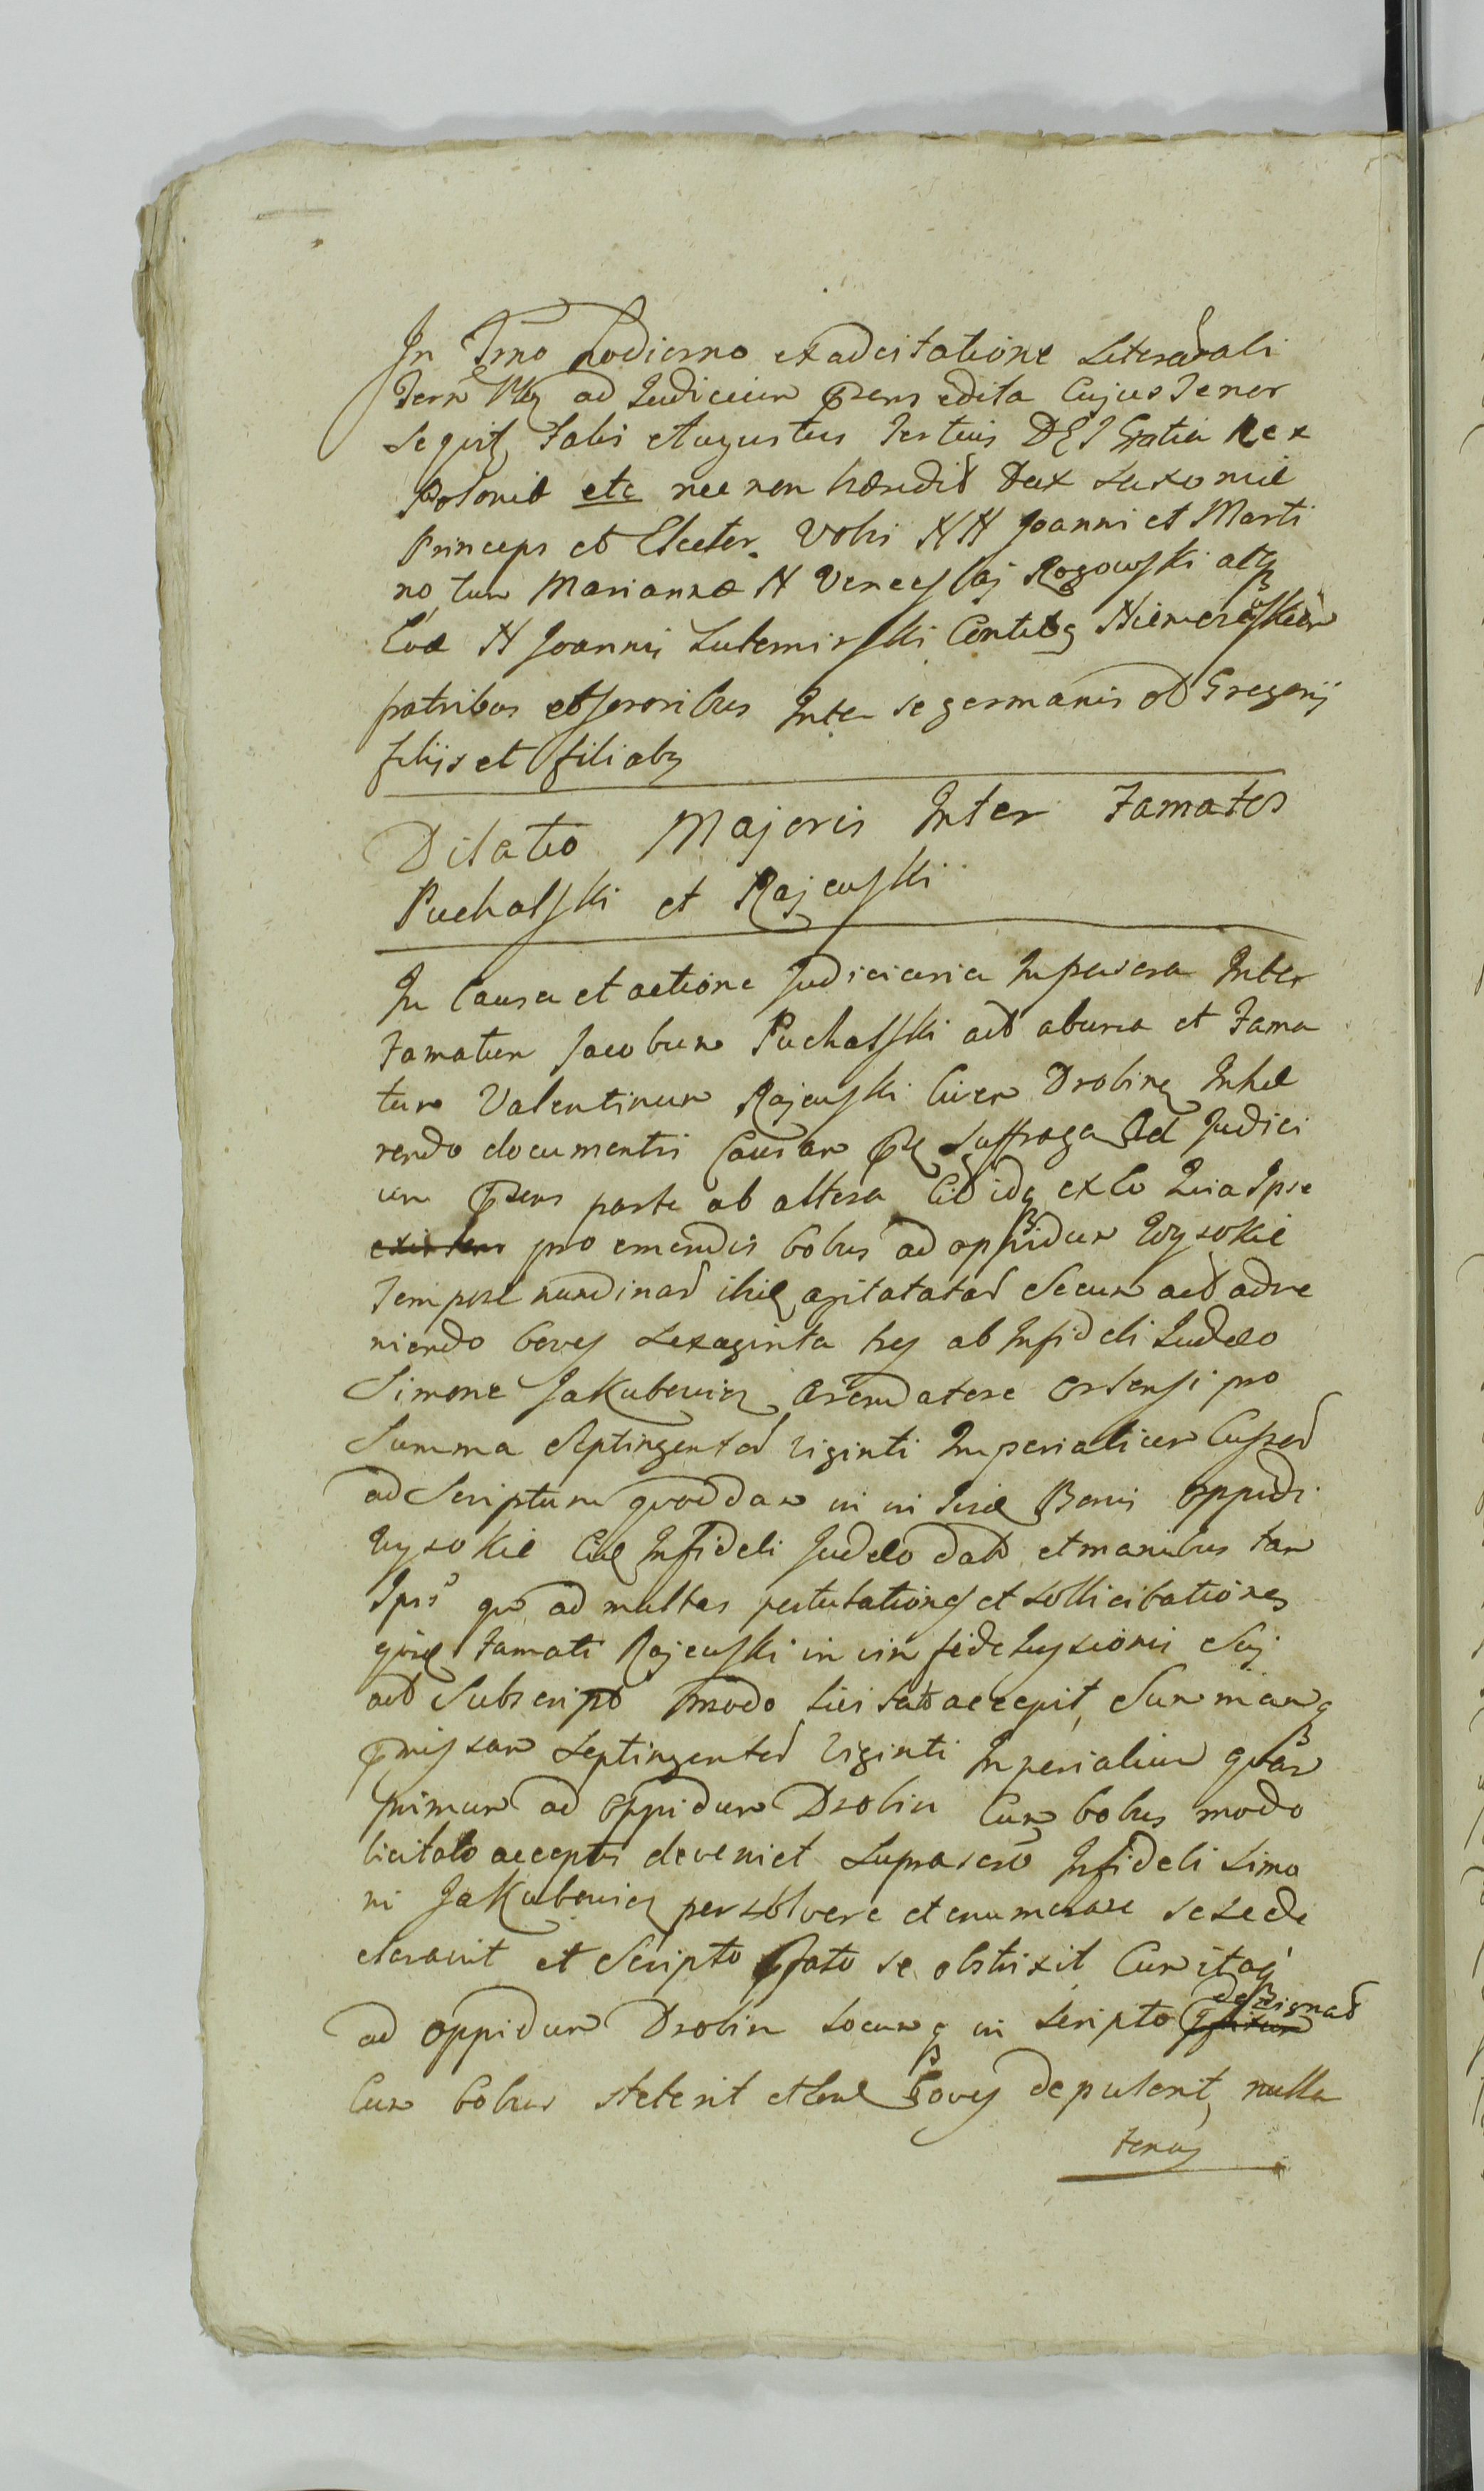 In Trno hodierno ex adcitatione Literali
Terr Plz ad Judicium Prens edita Cujus Tenor
Seqvit Talis Augustus Tertius DEI Gratia Rex
Poloniæ etc nec non hæredit Dux Saxoniæ
Princeps et Elector. Vobis NN Joanni et Marti
no tum Mariannæ N Venceslaj Rogowski atq
Evæ N Joannis Lutomirski
fratribus et sororibus Inter se germanis olt Gregorij
filijs et filiabg
Dilatio Majoris Inter Famatos
Puchalski et Rajewski
In Causa et actione Judiciaria Inferiora Inter
Famatum Jacobum Puchalski act ab una et Fama
tum Valentinum Rajewski Civem Drobinq Inhæ
rendo documentis Causam Suffraga Ad Judici
um Prens parte ab altera Cit idq ex Eo Quia Ipse
existens pro emendis bobus ad oppidum Wysokie
Tempore nundinar ibiq agitatatar Secum act adve
niendo boves sexaginta tres ab Infideli Judæo
Simone Jakubowicz Arendatore pro
Summa Septingentor viginti Imperialium Cussor
ad Scriptum qvoddam in in Bonis Oppidi
Wysokie Infideli Judæo dato et manibus tam
Ipsi qm ad multas pertubationes et sollicitationes
Famati Rajewski in vim fidejussionis Suj
act Subscripto modo licitato accepit, Summamq
Pmissam Septingentor Viginti Imperialium qvam
primum ad Oppidum Drobin Cum bobus modo
licitato acceptis deveniet Suprascro Infideli Simo
ni Jakubowicz persolvere et enumerare sese de
claravit et Scripto Pfato se obstrixit Cum itaq
ad oppidum Drobin Locumq in scripto designat
Cum bobus steterit et boves depulerit, nulla
tenus